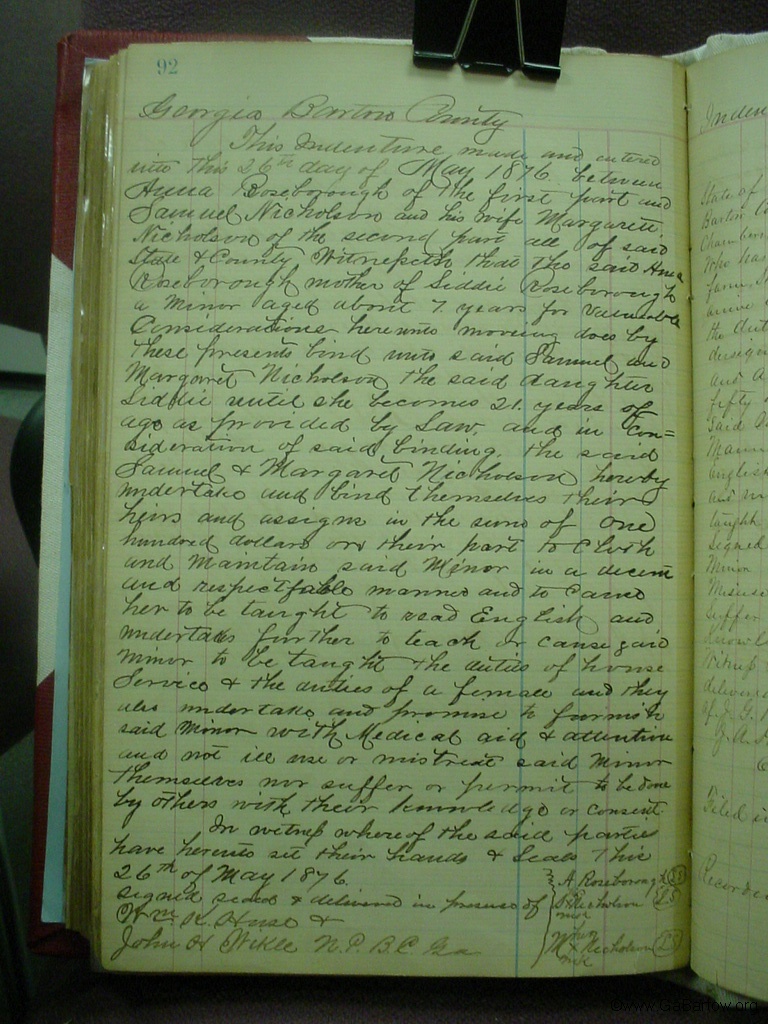 92
Georgia Bartow County
This Indenture made and entered
into this 26th day of May 1876 between
Anna Roseborough of the first part and
Samuel Nicholson and his wife Margarett
Nicholson of the second part all of said
State & County Witnesseth that the said Anna
Roseborough mother of Siddie Roseborough
a minor aged about 7 years for valuable
Considerations hereunto moving does by
these presents bind unto said Samuel and
Margaret Nicholson the said daughter
Siddie until she becomes 21 years of
age as provided by Law, and in con=
sideration of said binding the said
Samuel & Margaret Nicholson hereby
undertake and bind themselves their
heirs and assigns in the sum of one
hundred dollars on their part to Cloth
and maintain said Minor in a decent
and respectfable manner and to cause
her to be taught to read English and
undertakes further to teach or cause said
minor to be taught the duties of house
Service & the duties of a female and they
also undertake and promise to furnish
said minor with Medical aid & attention
and not ill use or mistreat said minor
themselves nor suffer or permit to be done
by others with their knowledge or consent
In witness whereof the said parties
have hereunto set their hands & Seals This
26th of May 1876.
signed sealed & delivered in presence of
A. Roseborough LS
Nicholson LS
Wm
John H Wikle N.P.B.C. Ga
Nicholson LS
State of
Bartow Co
who has
the dut
and a
fifty
said
english
and
taught
signed
minor
suffer
witness
Filed in
Recorded
www.GaBartow.org